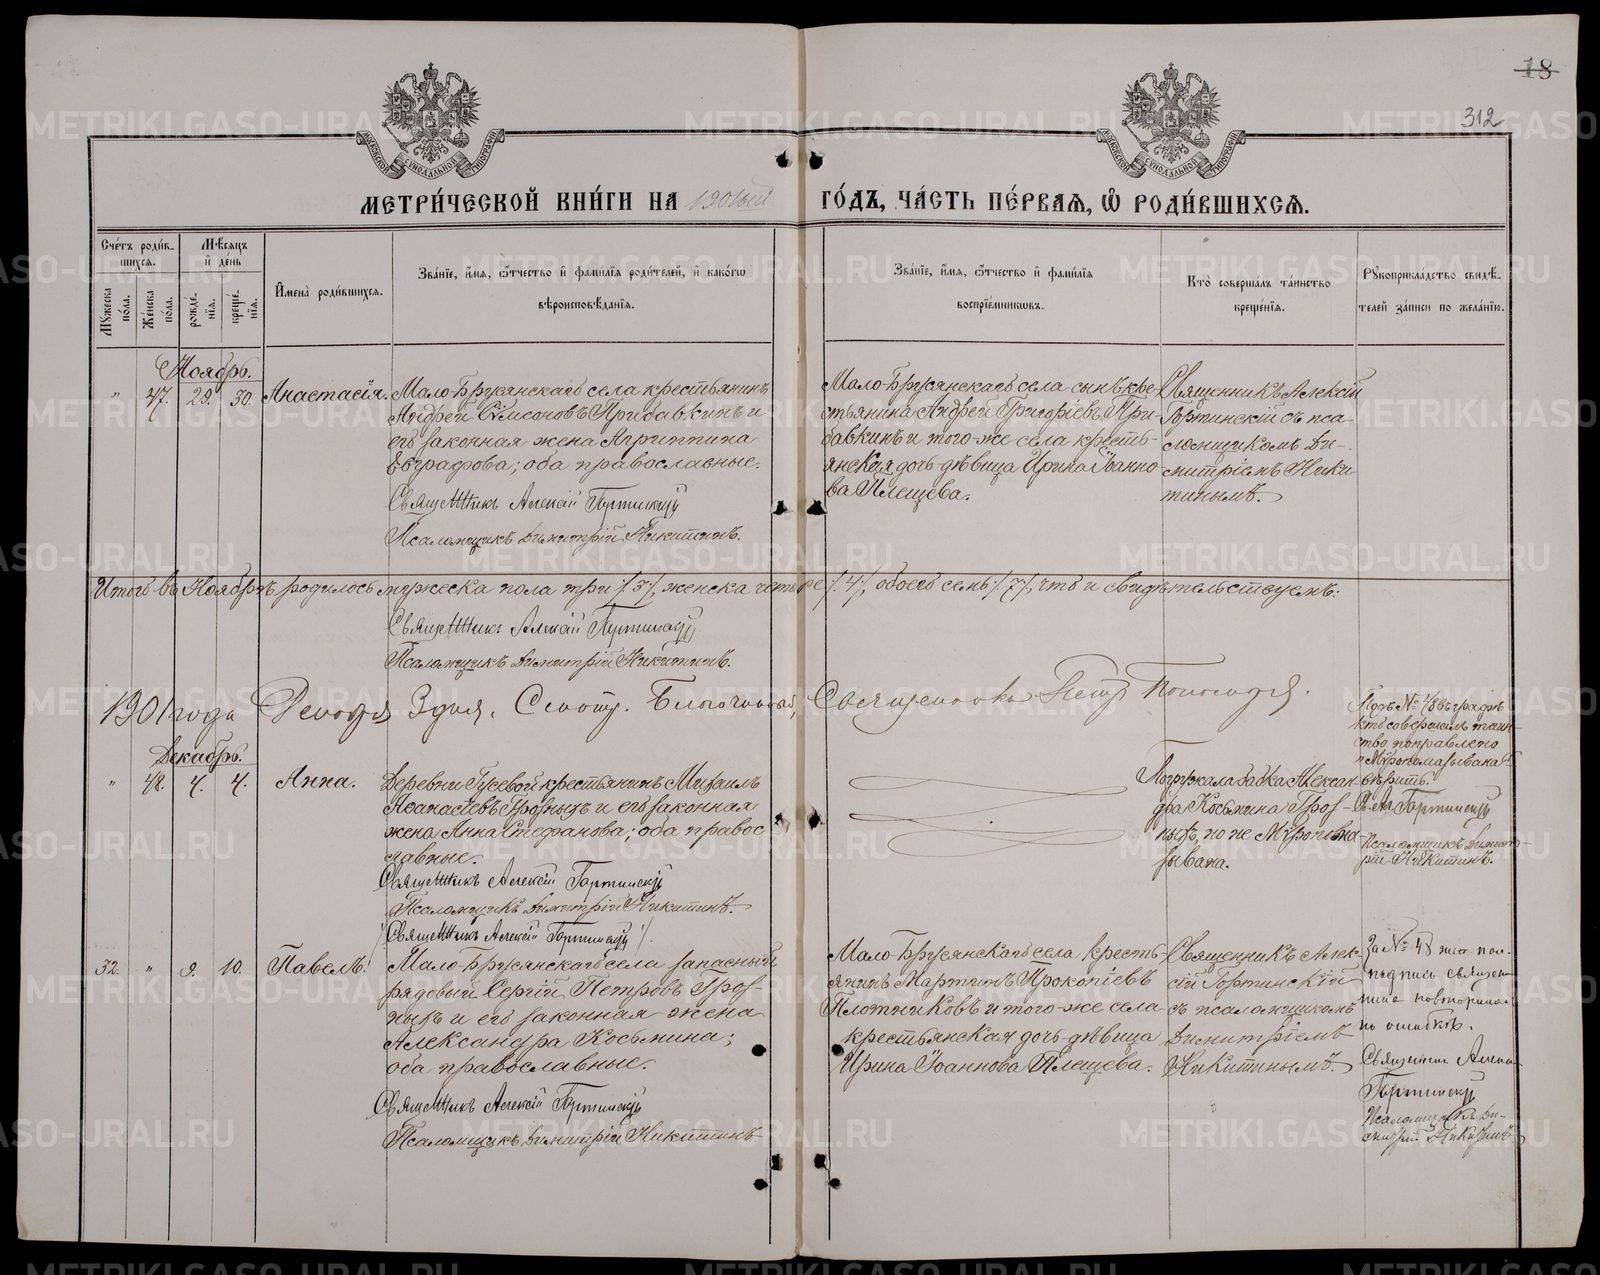 18
312
МЕТРИ́ЧЕСКОЙ КНИ́ГИ НА 1901ый ГО́ДЪ, ЧА́СТЬ ПЕ́РВАѦ, Ѽ РОДИ́ВШИХСѦ.
Сче́тъ роди́в-
шихсѧ.
Мꙋ́жеска по́ла.
Же́нска по́ла.
Мѣ́сѧцъ
и҆ де́нь
рожде́-
нїѧ.
креще́-
нїѧ.
И҆мена̀ роди́вшихсѧ.
Зва́нїе, и҆́мѧ, ѻ҆́тчество и҆ фами́лїѧ роди́телей, и҆ како́гѡ
вѣроисповѣ́данїѧ.
Зва́нїе, и҆́мѧ, ѻ҆́тчество и҆ фами́лїѧ
воспрїе́мникѡвъ.
Кто̀ соверша́лъ та́инство
креще́нїѧ.
Рꙋкоприкла́дство свидѣ́-
телей за́писи по жела́нїю.
Ноябрь.
" 47. 29. 30. Анастасія.
Мало-Брусянскаго села крестьянинъ
Андрей Симеоновъ Прибавкинъ и
его законная жена Агриппина
Евграфова; оба православные.
Священникъ Алексій Гортинскій
Псаломщикъ Димитрій Никитинъ.
Мало-Брусянскаго села сынъ кре-
стьянина Андрей Григоріевъ При-
бавкинъ и того-же села кресть-
янская дочь дѣвица Ирина Іоанно-
ва Плещева.
Священникъ Алексій
Гортинскій съ пса-
ломщикомъ Ди-
митріемъ Ники-
тинымъ.
Итого въ Ноябрѣ родилось мужеска пола три /3/, женска четыре /4/, обоего семь /7/, что и свидѣтельствуемъ:
Священникъ Алексій Гортинскій
Псаломщикъ Димитрій Никитинъ.
1901 года Декабря 3 дня. Смотр. Благочинный, Священникъ Петръ
Декабрь.
" 48. 4. 4. Анна.
Деревни Гусевой крестьянинъ Михаилъ
Аѳанасіевъ Грозныхъ и его законная
жена Анна Стефанова; оба правос-
лавные.
Священникъ Алексій Гортинскій
Псаломщикъ Димитрій Никитинъ.
/Священникъ Алексій Гортинскій/.
Погружала бабка Алексан-
дра Косьмина Гроз-
ныхъ, но не Мѵропома-
зывала.
Подъ № 48 въ графѣ
кто совершалъ таин-
ство поправлено
"Мѵропомазывала"
вѣрить.
Св. Ал. Гортинскій
Псаломщикъ Димит-
рій Никитинъ.
32. " 9. 10. Павелъ.
Мало-Брусянскаго села запасный
рядовый Сергій Петровъ Гроз-
ныхъ и его законная жена
Александра Косьмина;
оба православные.
Священникъ Алексій Гортинскій
Псаломщикъ Димитрій Никитинъ
Мало-Брусянскаго села кресть-
янинъ Мартинъ Прокопіевъ
Плотниковъ и того-же села
крестьянская дочь дѣвица
Ирина Іоаннова Плещева.
Священникъ Алек-
сій Гортинскій
съ псаломщикомъ
Димитріемъ
Никитинымъ.
За № 48
подпись священ-
ника повторена
по ошибкѣ.
Священникъ Алексій
Гортинскій
Псаломщикъ Ди-
митрій Никитинъ
METRIKI.GASO-URAL.RU